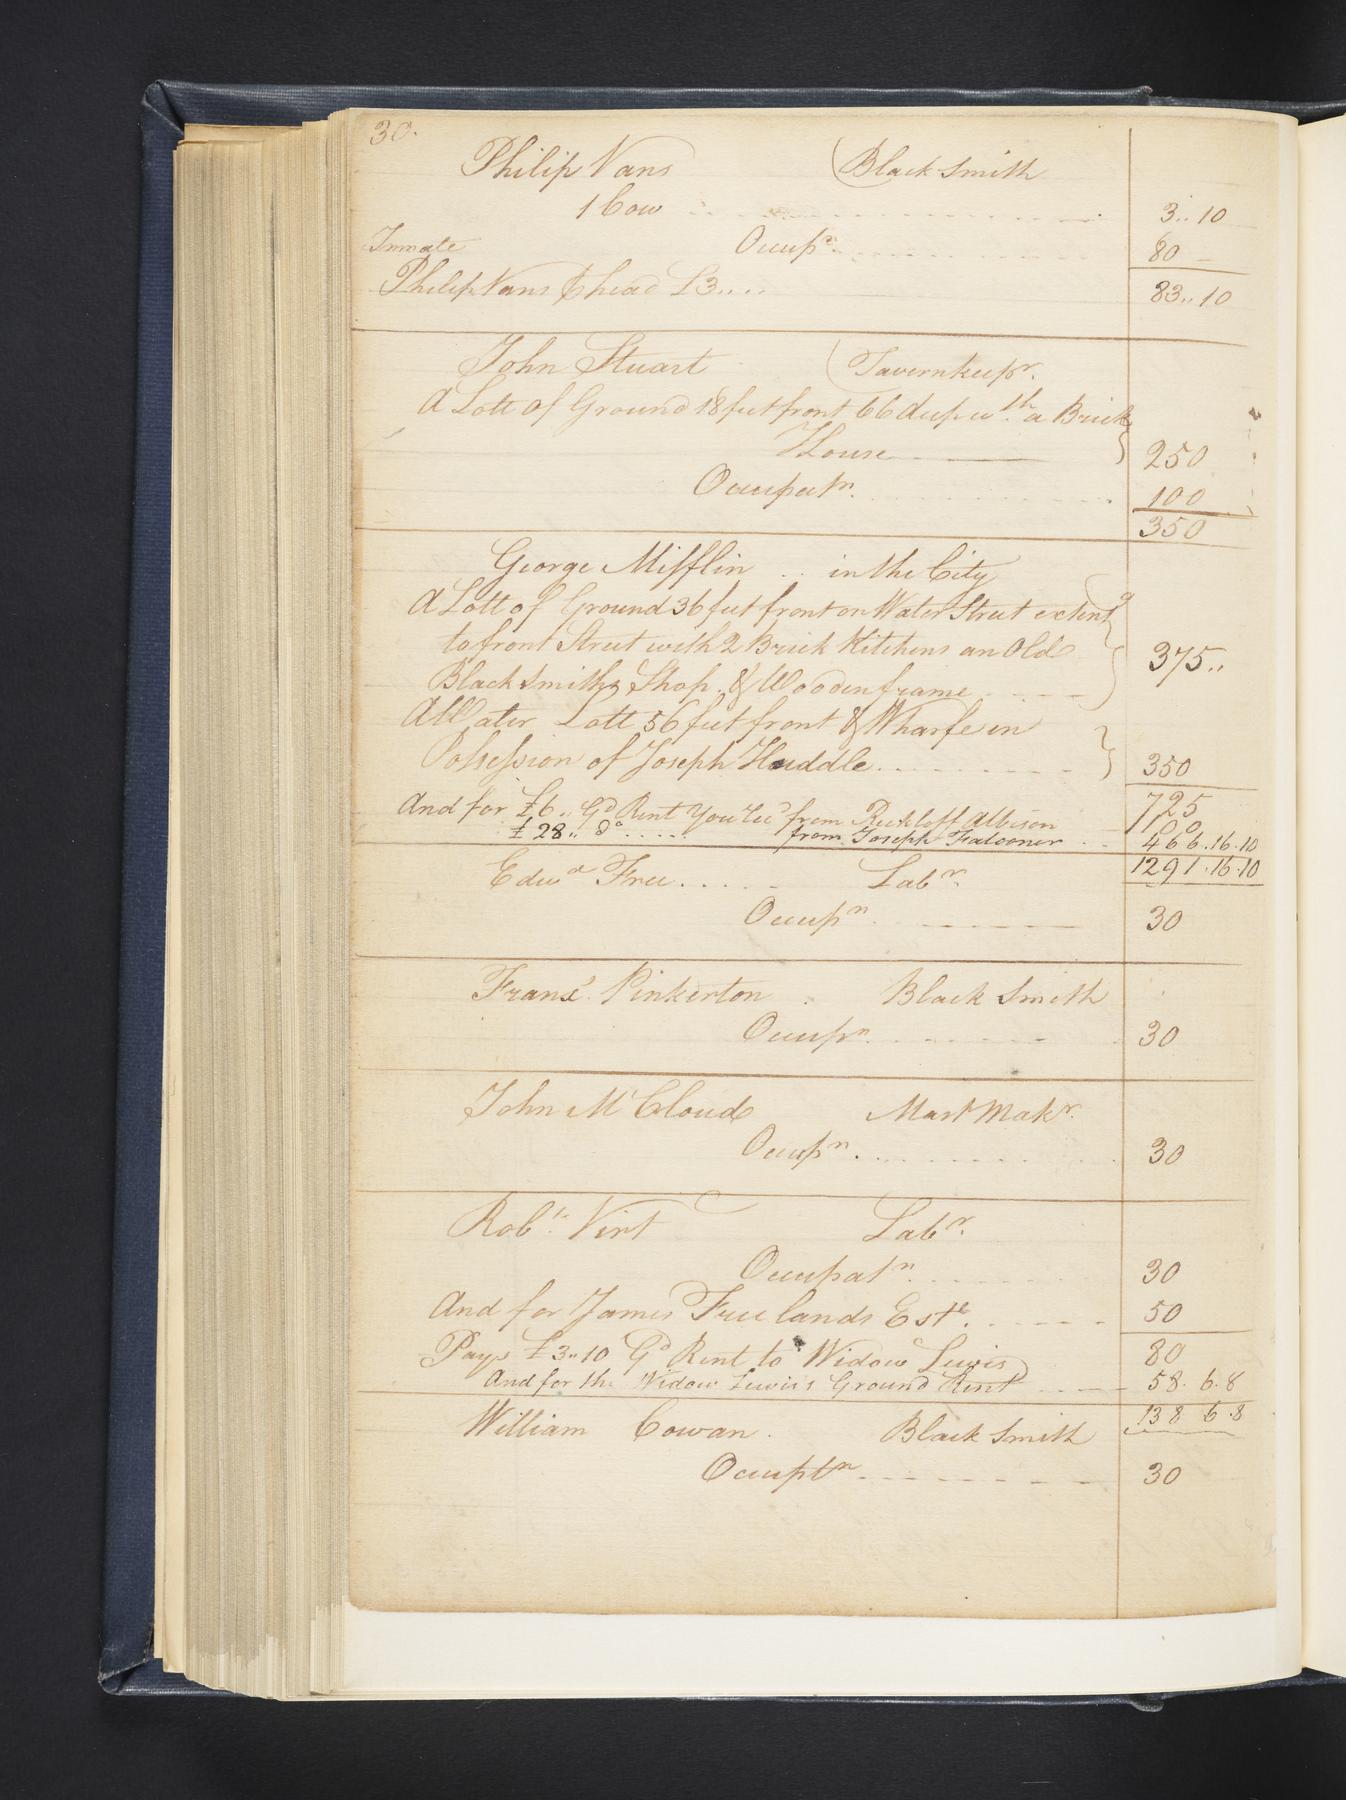 30.
Philip Vans (Black Smith
1 Cow 3..10
Occupn. 80 –
Inmate
Philip Vans p head £3.... 83..10
John Stuart (Tavernkeepr.
A Lott of Ground 18 feet front 66 deep wth. a Brick
House 250
Occupatn. 100
350
George Mifflin .. in the City
A Lott of Ground 36 feet front on Water Street extendg
to front Street with 2 Brick Kitchens an Old
Black Smiths Shop. & Wooden frame 375..
A Water Lott 56 feet front & Wharfe in
Possession of Joseph Huddle 350
725
And for £6.. Gd Rent You recd from Albison 100
£28.. do ..... from Joseph Falconer 466.16.10
1291.16.10
Edwd Free Labr.
Occupn. 30
Frans. Pinkerton Black Smith
Occupn. 30
John McCloud Mast Makr.
Occupn. 30
Robt. Virt Labr.
Occupatn. 30
And for James Freelands Este. 50
Pays £3..10 Gd Rent to Widow Lewis 80
And for the Widow Lewis's Ground Rent 58.6.8
138 6.8
William Cowan. Black Smith
Occuptn. 30